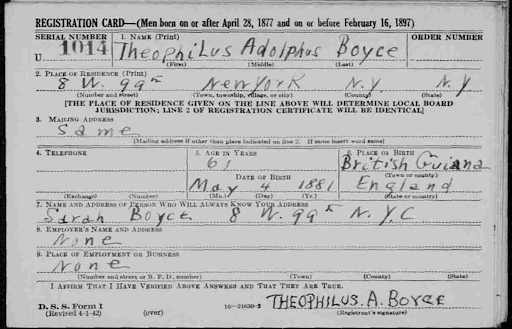 REGISTRATION CARD—(Men born on or after April 28, 1877 and on or before February 16, 1897)
SERIAL NUMBER 1. NAME (Print) ORDER NUMBER
U 1014 Theophilus Adolphus Boyce
(First) (Middle) (Last)
2. PLACE OF RESIDENCE (Print)
8 W. 99th New York N.Y. N.Y
(Number and street) (Town, township, village, or city) (County) (State)
[THE PLACE OF RESIDENCE GIVEN ON THE LINE ABOVE WILL DETERMINE LOCAL BOARD
JURISDICTION; LINE 2 OF REGISTRATION CERTIFICATE WILL BE IDENTICAL]
3. MAILING ADDRESS
Same
[Mailing address if other than place indicated on line 2. If same insert word same]
4. TELEPHONE 5. AGE IN YEARS 6. PLACE OF BIRTH
61 British Guiana
DATE OF BIRTH (Town or county)
May 4 1881 England
(Exchange) (Number) (Mo.) (Day) (Yr.) (State or country)
7. NAME AND ADDRESS OF PERSON WHO WILL ALWAYS KNOW YOUR ADDRESS
Sarah Boyce 8 W. 99th N.Y.C
8. EMPLOYER'S NAME AND ADDRESS
None
9. PLACE OF EMPLOYMENT OR BUSINESS
None
(Number and street or R. F. D. number) (Town) (County) (State)
I AFFIRM THAT I HAVE VERIFIED ABOVE ANSWERS AND THAT THEY ARE TRUE.
D. S. S. Form 1 THEOPHILUS. A. BOYCE
(Revised 4-1-42) (over) (Registrant's signature)